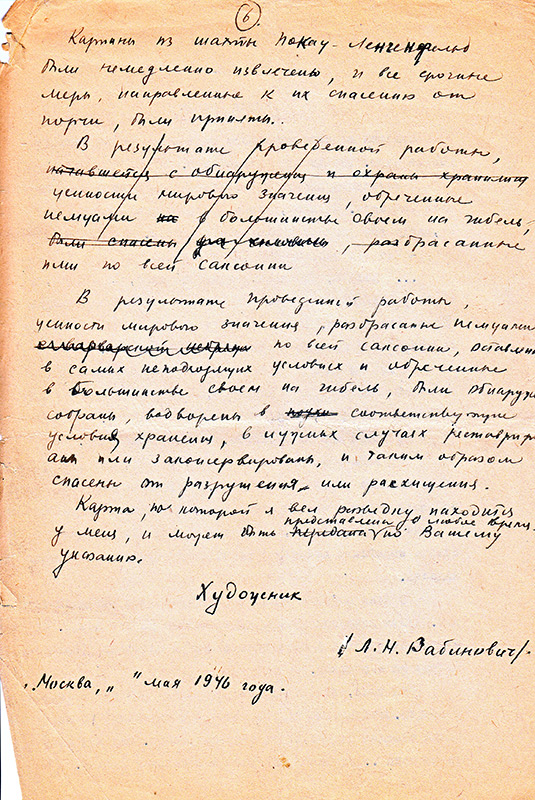 6.
Картины из шахты Покау-Ленгефельд
были немедленно извлечены, и все срочные
меры, направленные к их спасению от
порчи, были приняты.
В результате проведенной работы,
начавшейся с обнаружения и охраны хранилищ
ценности мирового значения, обреченные
немцами на в большинстве своем на гибель,
были спасены для, разбрасанные
ими по всей Саксонии
В результате проведенной работы,
ценности мирового значения, разбрасаные немцами
по всей Саксонии, оставленн
в самых неподходящих условиях и обреченные
в большинстве своем на гибель, были обнаруже
собраны, водворены в соответствующие
условия хранения, в нужных случаях реставриро
аны или законсервированы, и таким образом
спасены от разрушения или расхищения.
Карта, по которой я вел разведку находится
представлена в любое время
у меня, и может быть передана по Вашему
указанию.
Художник
/Л.Н. Рабинович/.
"Москва, " " мая 1946 года.